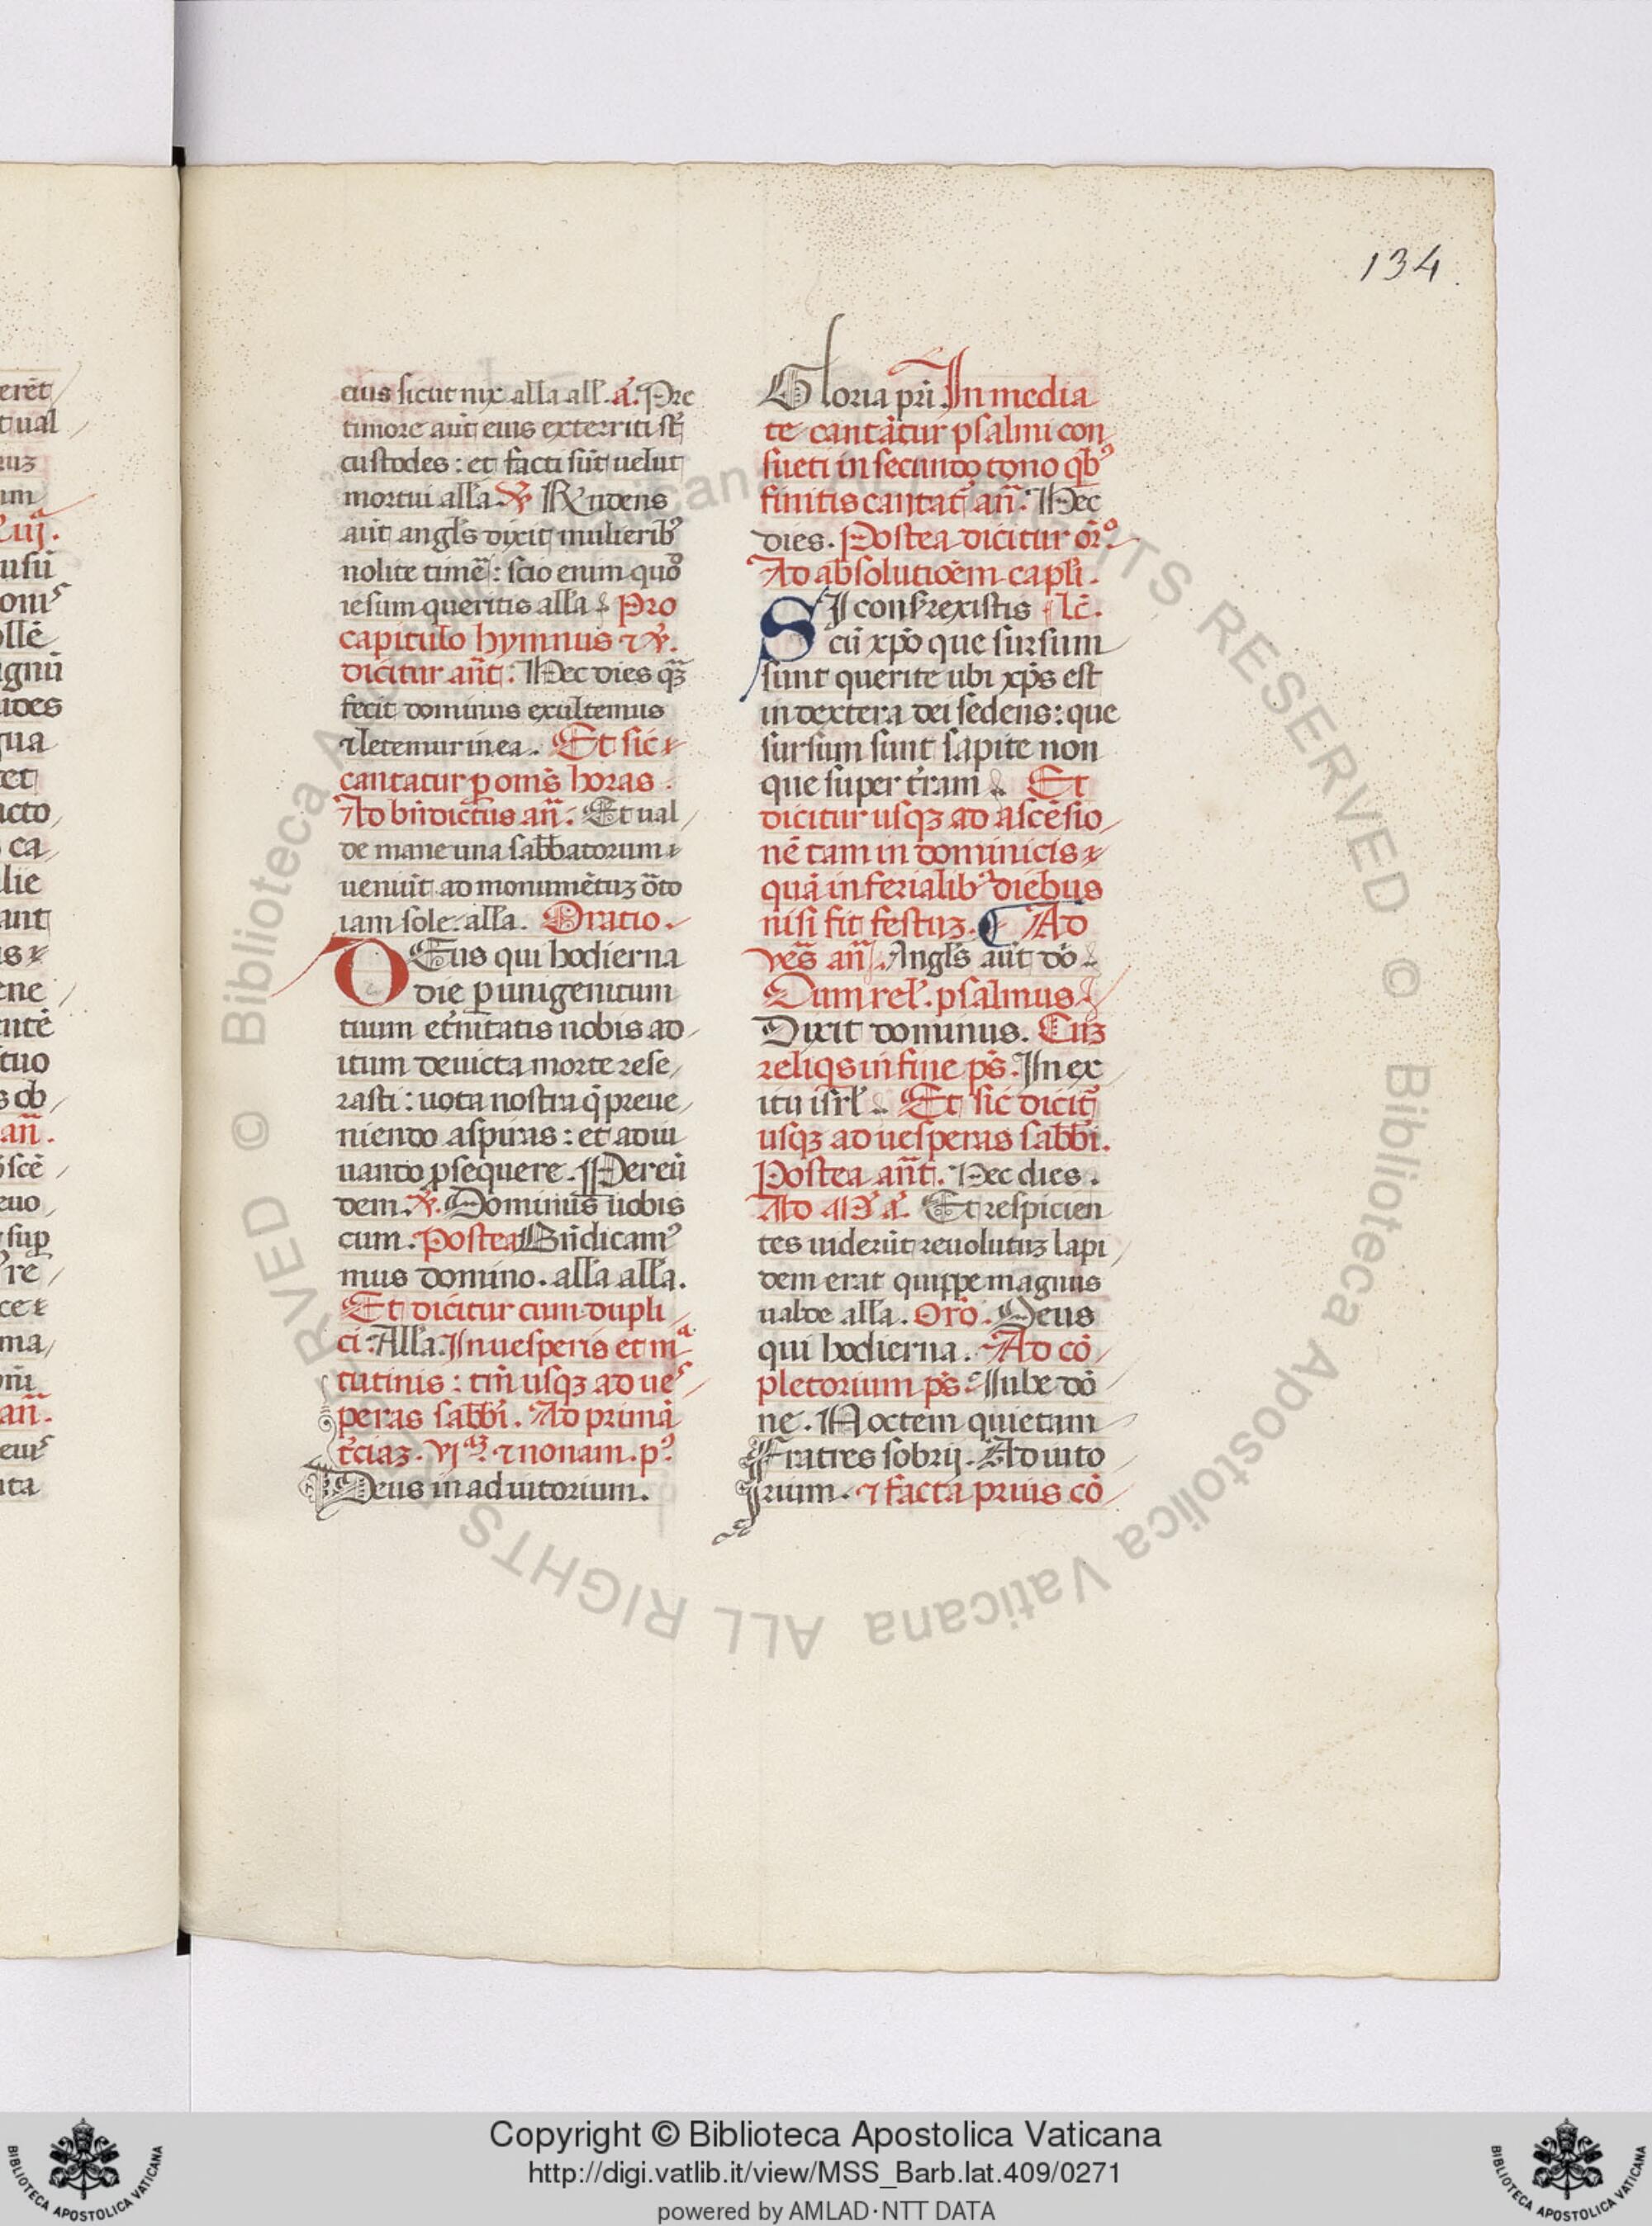 134
eius sicut nix alla all̄. a᷒. Pre
timore aūt eius exterriti st̄
custodes : et facti sūt uelut
mortui all̄a. ℣ Rn̄dens
aūt angl̄s dixit mulierib᷒
nolite timē : scio enim quo᷒
iesum queritis all̄a. Pro
capitulo hymnus ⁊ ℣.
dicitur an̄t : Hec dies q̄ꝫ
fecit dominus exultemus
⁊ letemur in ea. Et sic
cantatur ꝑ om̄s horas.
Ad bn̄dict᷒us an̄. Et ual
de mane una sabbatorum
ueniūt ad monumētuꝫ ōto
iam sole. all̄a. Oratio.
DEus qui hodierna
die ꝑ unigenitum
tuum et᷒nitatis nobis ad
itum deuicta morte rese
rasti : uota nostra q̄ preue
niendo aspiras : et adiu
uando ꝓsequere. Per eū
dem. ℣. Dominus uobis
cum. Postea Bn̄dicam᷒
mus domino. all̄a all̄a.
Et dicitur cum dupli
ci. All̄a. In uesperis et ma
tutinis : tm̄ usqꝫ ad ues
peras sabb̄i. Ad primā
t᷒ciaꝫ. vj. ⁊ nonam. p᷒.
Deus in adiutorium.
Gloria pri̅ In media
te cantātur psalmi con
sueti in secundo tono qb᷒
finitis cantat᷒ an̄. Hec
dies. Postea dicitur or̄o.
Ad absolutiōem capl̄i.
SI consurrexistis lc̄.
cū xp̄o que sursum
sunt querite ubi xp̄s est
in dextera dei sedens : que
sursum sunt sapite non
que super t᷒ram. Et
dicitur usqꝫ ad ascēsio
nē tam in dominicis
quā in ferialib᷒ diebus
nisi fit festuꝫ. ¶ Ad
ves̄ an̄. Angl̄s aūt dō.
Cum rel̄. psalmus
Dixit dominus. Cuꝫ
reliqs in fine ps̄. In ex
itu isrl̄. Et sic dicit᷒
usqꝫ ad uesperas sabb̄i.
Postea an̄t. Hec dies.
Ad M᷒ a᷒. Et respicien
tes uiderūt reuolutuꝫ lapi
dem erat quippe magnus
ualde all̄a. Orō. Deus
qui hodierna. Ad cō
pletorium ps̄. Iube dō
ne. Noctem quietam
Fratres sobrij. Adiuto
rium. ⁊ facta prius cō
Copyright © Biblioteca Apostolica Vaticana
http://digi.vatlib.it/view/MSS_Barb.lat.409/0271
powered by AMLAD·NTT DATA